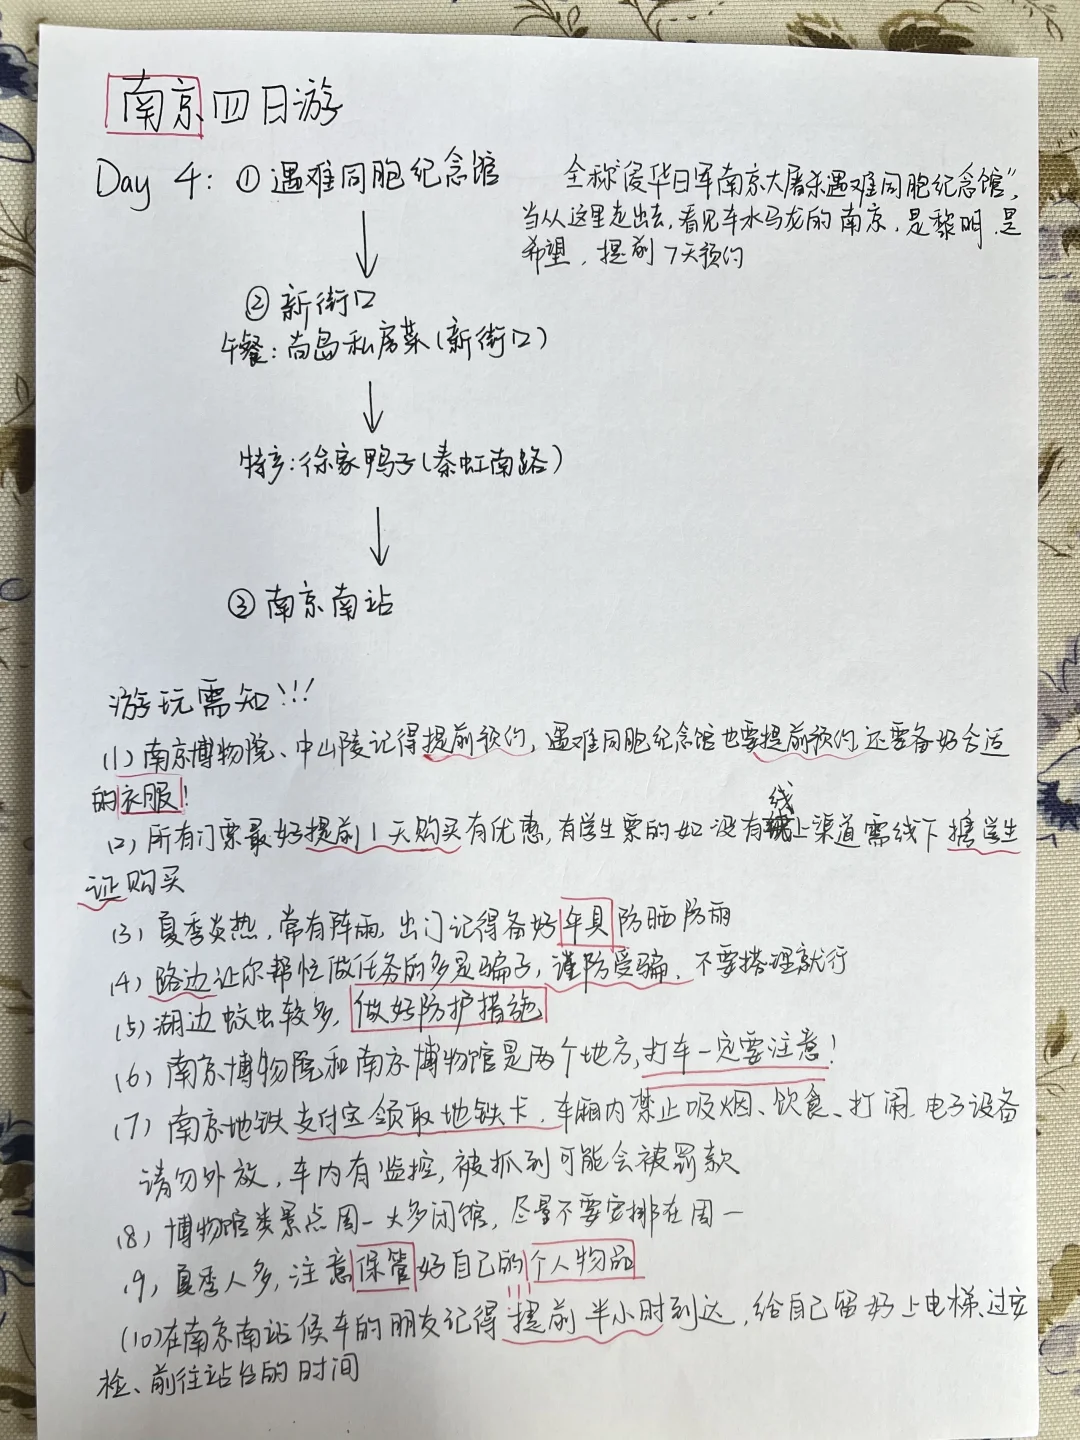 南京四日游
Day 4: ①遇难同胞纪念馆
全称“侵华日军南京大屠杀遇难同胞纪念馆”，
当从这里走出去，看见车水马龙的南京，是黎明，是
希望，提前7天预约
②新街口
午餐：尚岛私房菜（新街口）
特产：徐家鸭子（秦虹南路）
③南京南站
游玩需知!!!
(1)南京博物院、中山陵记得提前预约，遇难同胞纪念馆也要提前预约还要备好合适
的衣服！
(2)所有门票最好提前1天购买有优惠，有学生票的如没有线上渠道需线下携学生
证购买
(3)夏季炎热，常有阵雨，出门记得备好伞具防晒防雨
(4)路边让你帮忙做任务的多是骗子，谨防受骗，不要搭理就行
(5)湖边蚊虫较多，做好防护措施
(6)南京博物院和南京博物馆是两个地方，打车一定要注意！
(7)南京地铁支付宝领取地铁卡，车厢内禁止吸烟、饮食、打闹，电子设备
请勿外放，车内有监控，被抓到可能会被罚款
(8)博物馆类景点周一大多闭馆，尽量不要安排在周一
(9)夏季人多，注意保管好自己的个人物品
(10)在南京南站候车的朋友记得提前半小时到达，给自己留好上电梯、过安
检、前往站台的时间